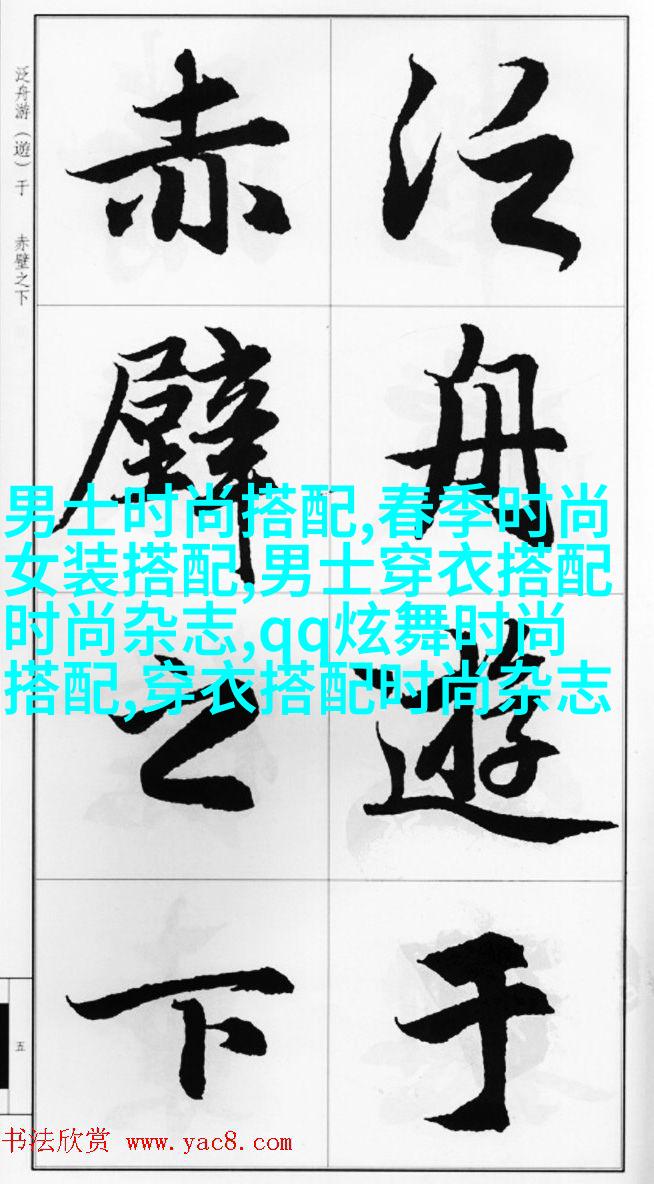 泛舟遊于
赤壁之下
泛舟游（遊）于　赤壁之下
男士时尚搭配,春季时尚
女装搭配,男士穿衣搭配
时尚杂志,qq炫舞时尚
搭配,穿衣搭配时尚杂志
五
书法欣赏 www.yac8.com